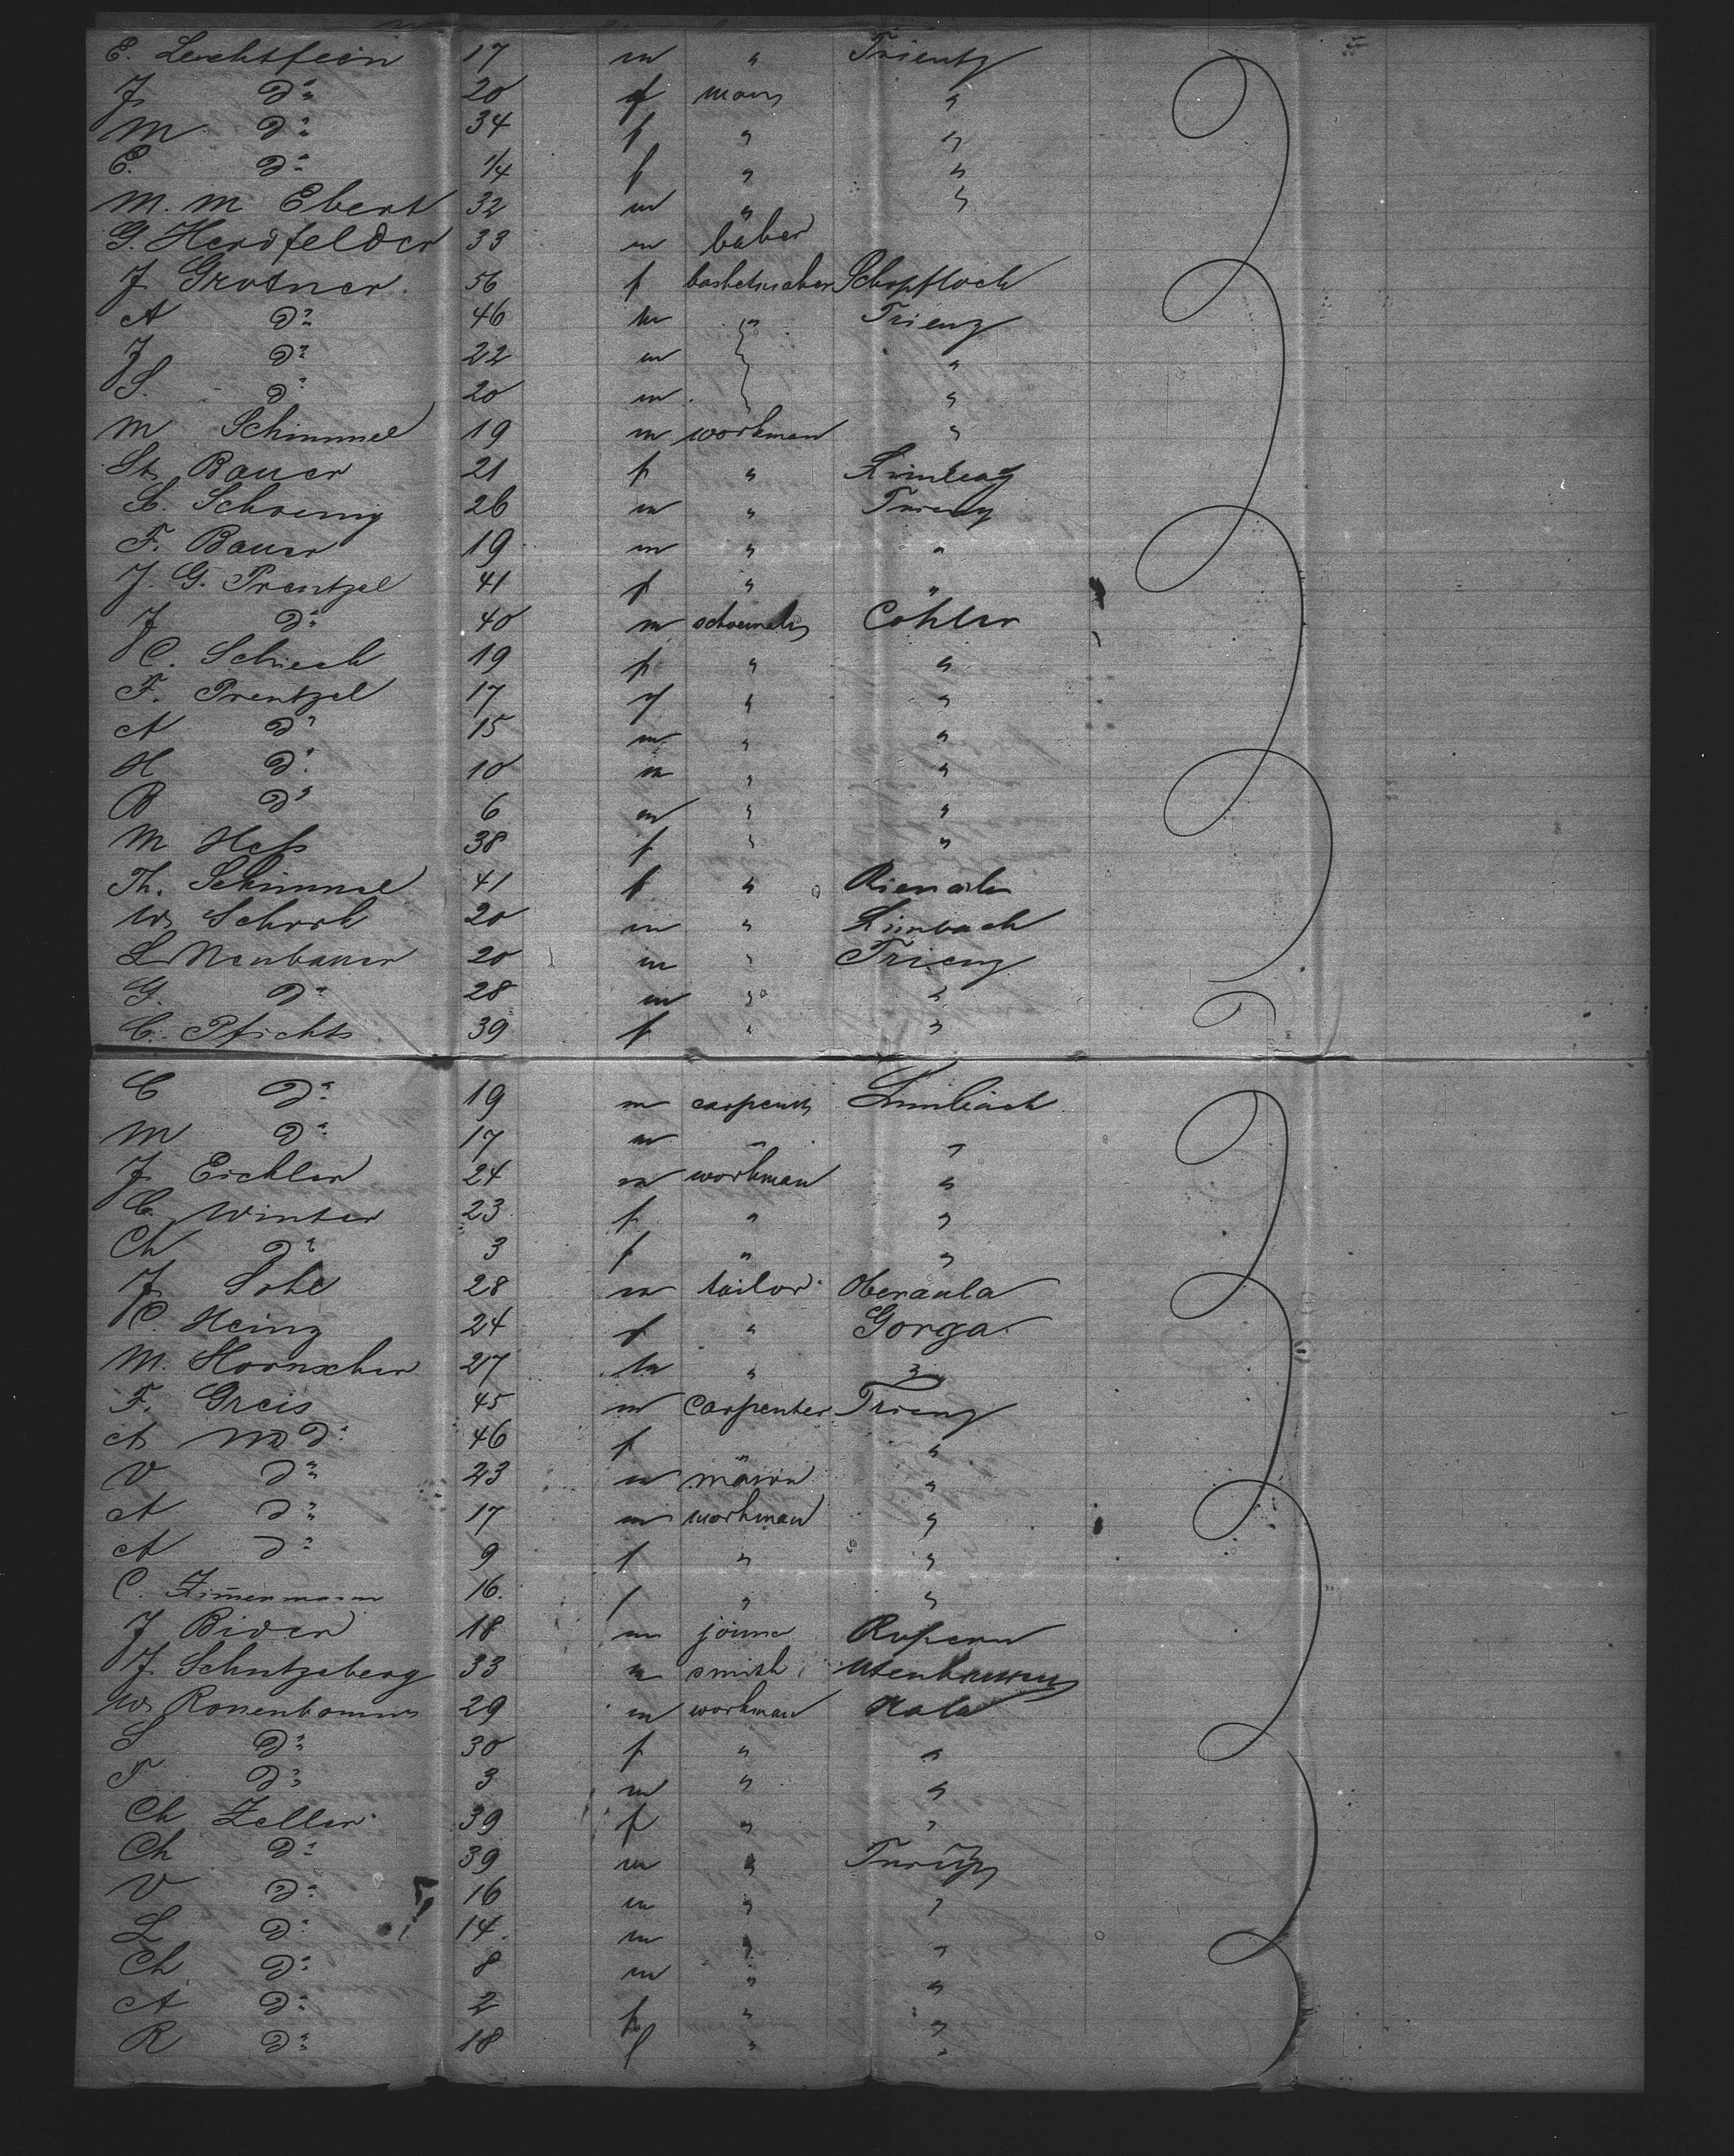 E. Leuchtfein 17 m " Trientz
J. do 20 f man "
M do 34 f " "
E. do 1/4 f " "
M. M Ebert 32 m " "
G. Herdfelder 33 m baker
J Grotner. 56 f basketmaker Schopfloch
A do 46 m " Trienz
J do 22 m "
S. do 20 m "
M Schimmel 19 m workman "
St. Bauer 21 f "
L. Schoenig 26 m " Trienz
F. Bauer 19 m " "
J. G. Prentzel 41 f " "
J do 40 m Cohler
C. Schieck 19 f " "
F. Prentzel 17 f " "
A do 15 m " "
H do 10 m " "
B do 6 m " "
M Hess 38 f " "
Th. Schimmel 41 f "
W. Schork 20 m " Limbach
L Neubauer 20 m " Trienz
G. do 28 m " "
C. Pfichts 39 f " "
C do 19 m carpenter Limbach
M do 17 m " "
J Eichler 24 m workman "
C. Winter 23 f " "
Ch do 3 f " "
J 28 m tailor Oberaula
C. Heinz 24 f " Gorga
M. Hornscher 27 m " "
F. Greis 45 m Carpenter Trienz
A M do 46 f " "
V do 23 m mason "
A do 17 m workman "
A do 9 f " "
C. Zimermann 16. f " "
J Bider 18 m joiner
J. Schutzeberg 33 m smith
W. Ronenbomm 29 m workman
S do 30 f " "
F do 3 m " "
Ch Zeller 39 f " "
Ch do 39 m " Trienz
V do 16 m " "
L do 14. m " "
Ch do 8 m " "
A do 2 f " "
R do 18 f " "